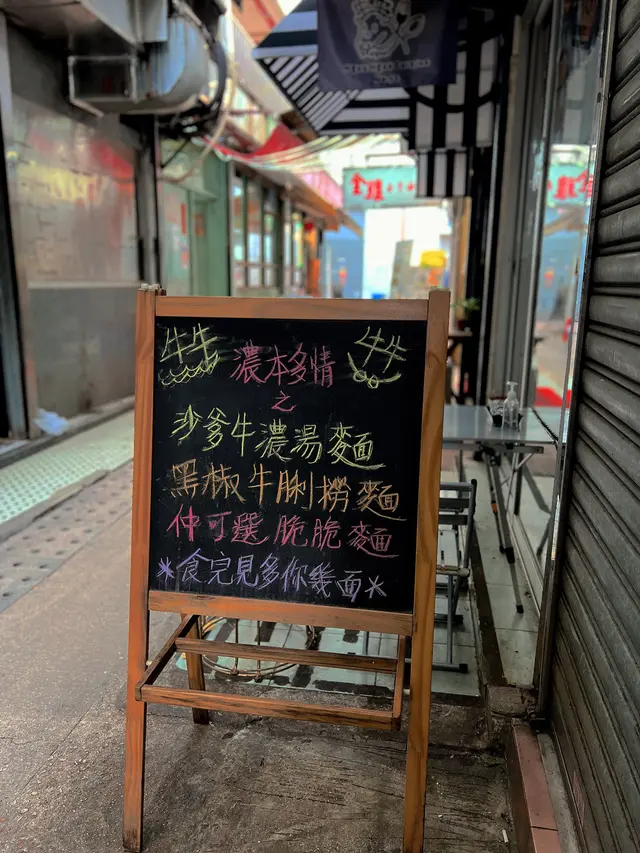 牛牛 濃本多情 牛牛
之
沙爹牛濃湯麵
黑椒牛脷撈麵
仲可選脆脆麵
*食完見多你幾面*